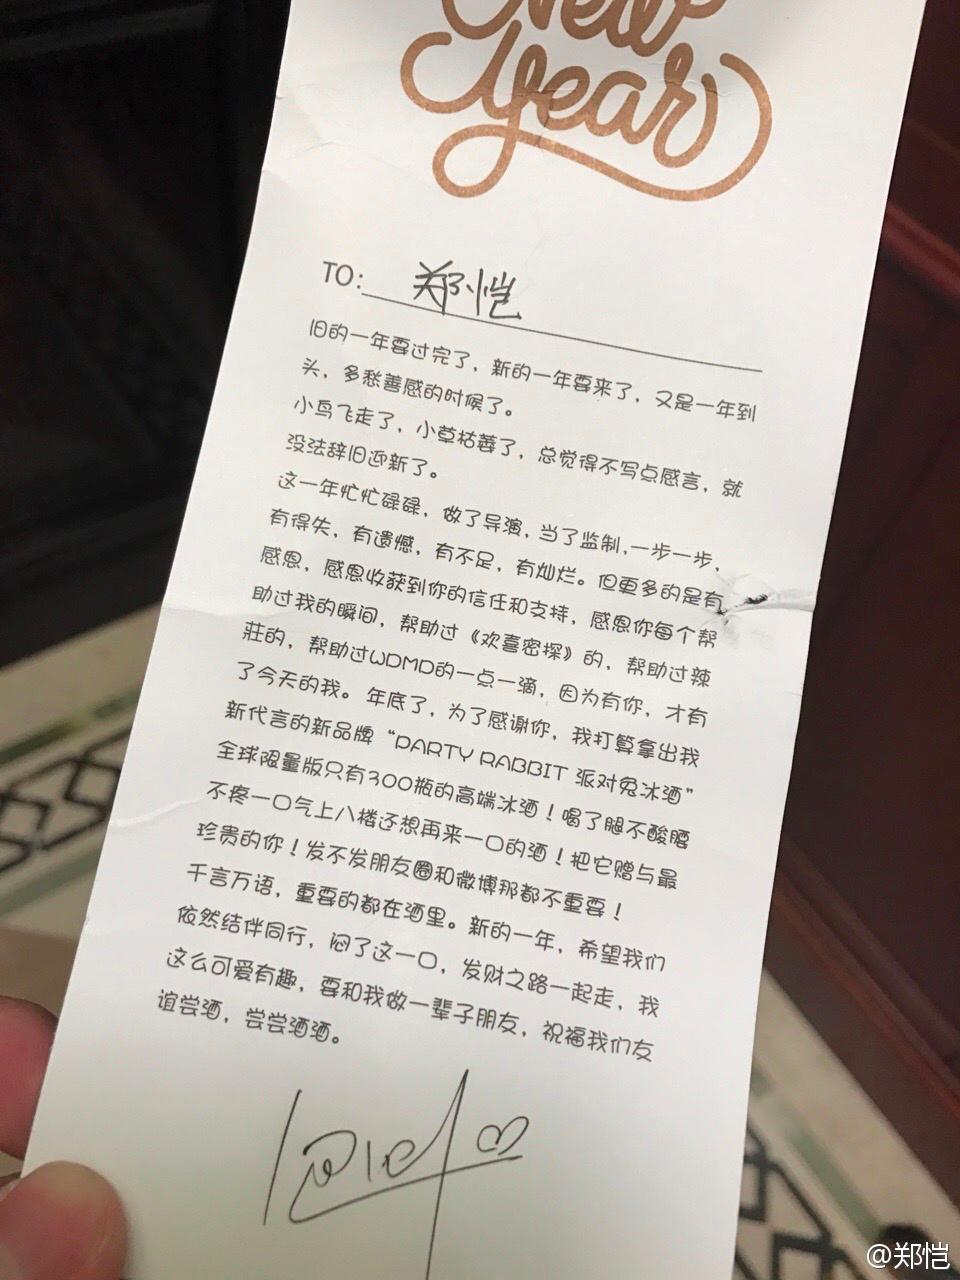 New
Year
TO: 郑恺
旧的一年要过完了，新的一年要来了，又是一年到
头，多愁善感的时候了。
小鸟飞走了，小草枯萎了，总觉得不写点感言，就
没法辞旧迎新了。
这一年忙忙碌碌，做了导演，当了监制，一步一步，
有得失，有遗憾，有不足，有灿烂。但更多的是有
感恩，感恩收获到你的信任和支持，感恩你每个帮
助过我的瞬间，帮助过《欢喜密探》的，帮助过辣
莊的，帮助过WDMD的一点一滴，因为有你，才有
了今天的我。年底了，为了感谢你，我打算拿出我
新代言的新品牌“PARTY RABBIT 派对兔冰酒”
全球限量版只有300瓶的高端冰酒！喝了腿不酸腰
不疼一口气上八楼还想再来一口的酒！把它赠与最
珍贵的你！发不发朋友圈和微博那都不重要！
千言万语，重要的都在酒里。新的一年，希望我们
依然结伴同行，闷了这一口，发财之路一起走，我
这么可爱有趣，要和我做一辈子朋友，祝福我们友
谊尝酒，尝尝酒酒。
@郑恺